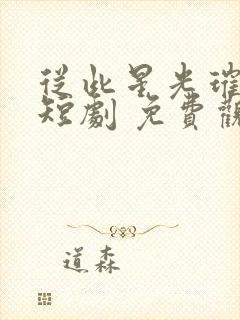 從此星光璀
短劇 免費觀
道森